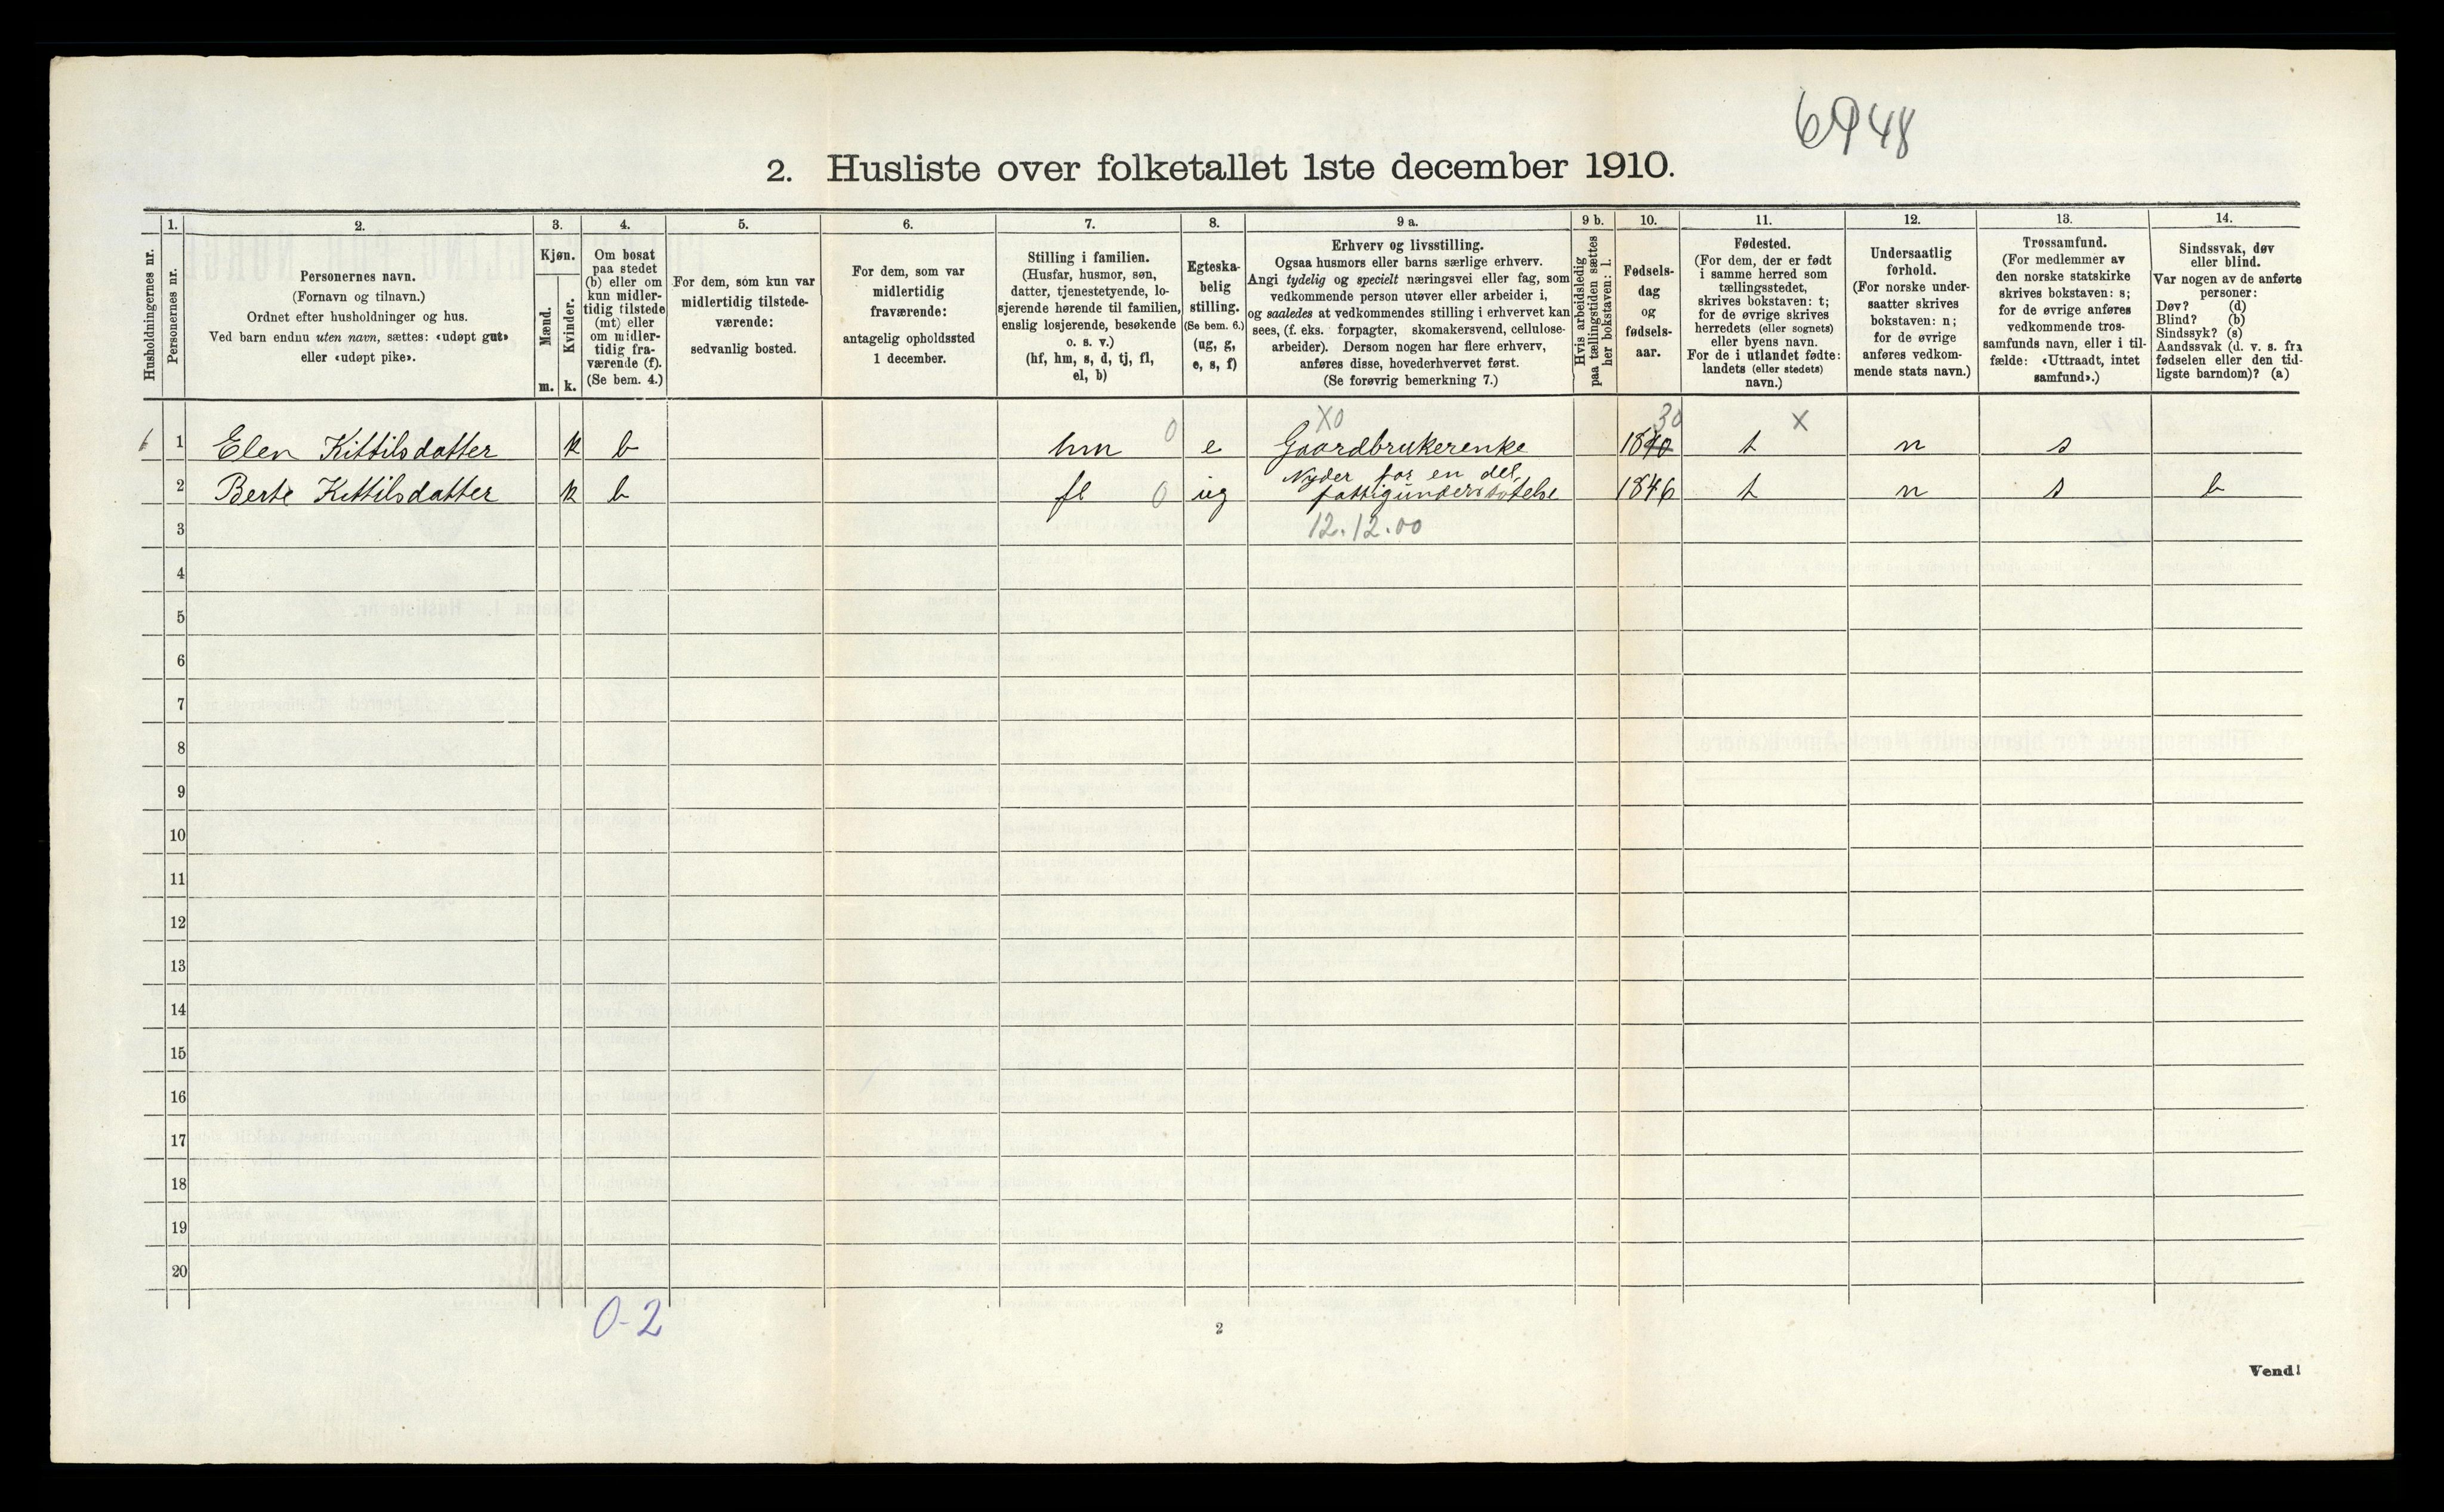 6948
2. Husliste over folketallet 1ste december 1910.
Husholdningernes nr.
1.
Personernes nr.
2.
Personernes navn.
(Fornavn og tilnavn.)
Ordnet efter husholdninger og hus.
Ved barn endnu uten navn, sættes: «udøpt gut»
eller «udøpt pike».
3.
Kjøn.
Mænd.
Kvinder.
m. k.
4.
Om bosat
paa stedet
(b) eller om
kun midler-
tidig tilstede
(mt) eller
om midler-
tidig fra-
værende (f).
(Se bem. 4.)
5.
For dem, som kun var
midlertidig tilstede-
værende:
sedvanlig bosted.
6.
For dem, som var
midlertidig
fraværende:
antagelig opholdssted
1 december.
7.
Stilling i familien.
(Husfar, husmor, søn,
datter, tjenestetyende, lo-
sjerende hørende til familien,
enslig losjerende, besøkende
o. s. v.)
(hf, hm, s, d, tj, fl,
el, b)
8.
Egteska-
belig
stilling.
(Se bem. 6.)
(ug, g,
e, s, f)
9 a.
Erhverv og livsstilling.
Ogsaa husmors eller barns særlige erhverv.
Angi tydelig og specielt næringsvei eller fag, som
vedkommende person utøver eller arbeider i,
og saaledes at vedkommendes stilling i erhvervet kan
sees, (f. eks. forpagter, skomakersvend, cellulose-
arbeider). Dersom nogen har flere erhverv,
anføres disse, hovederhvervet først.
(Se forøvrig bemerkning 7.)
9 b.
Hvis arbeidsledig
paa tællingstiden sættes
her bokstaven: l.
10.
Fødsels-
dag
og
fødsels-
aar.
11.
Fødested.
(For dem, der er født
i samme herred som
tællingsstedet,
skrives bokstaven: t;
for de øvrige skrives
herredets (eller sognets)
eller byens navn.
For de i utlandet fødte:
landets (eller stedets)
navn.)
12.
Undersaatlig
forhold.
(For norske under-
saatter skrives
bokstaven: n;
for de øvrige
anføres vedkom-
mende stats navn.)
13.
Trossamfund.
(For medlemmer av
den norske statskirke
skrives bokstaven: s;
for de øvrige anføres
vedkommende tros-
samfunds navn, eller i til-
fælde: «Uttraadt, intet
samfund».)
14.
Sindssvak, døv
eller blind.
Var nogen av de anførte
personer:
Døv? (d)
Blind? (b)
Sindssyk? (s)
Aandssvak (d. v. s. fra
fødselen eller den tid-
ligste barndom)? (a)
X0 30 X
1 Elen Kittilsdatter k b hm 0 e Gaardbrukerenke 1840 t n s
Nyder for en del
2 Berte Kittilsdatter k b fl 0 ug fattigunderstøtelse 1846 t n s b
3 12.12.00
4
5
6
7
8
9
10
11
12
13
14
15
16
17
18
19
20
0-2
2
Vend!